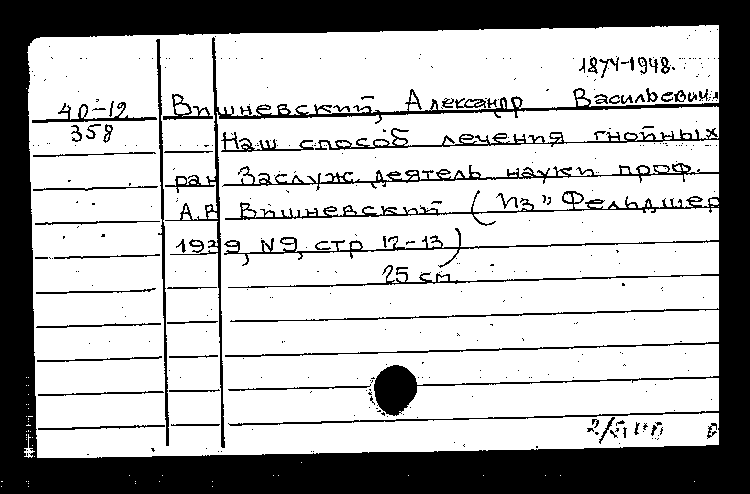 1874-1948.
40-12
358
Вишневский, Александр Васильевич
Наш способ лечения гнойных
ран Заслуж. деятель науки проф.
А.В Вишневский (Из "Фельдшер
1939, №9, стр 12-13)
25 см.